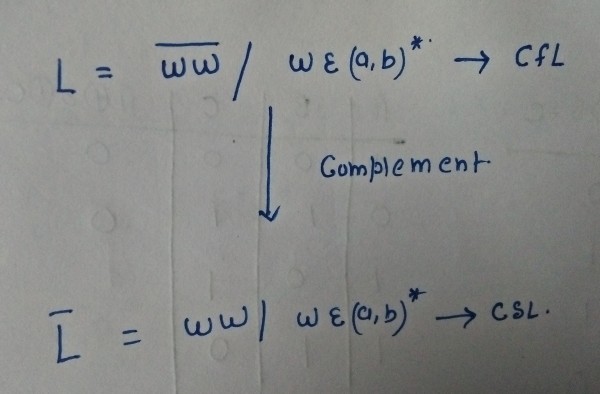 L = \overline{ωω} / ω ε (a,b)* → CfL
Complement
L̅ = ωω | ω ε (a,b)* → CSL.